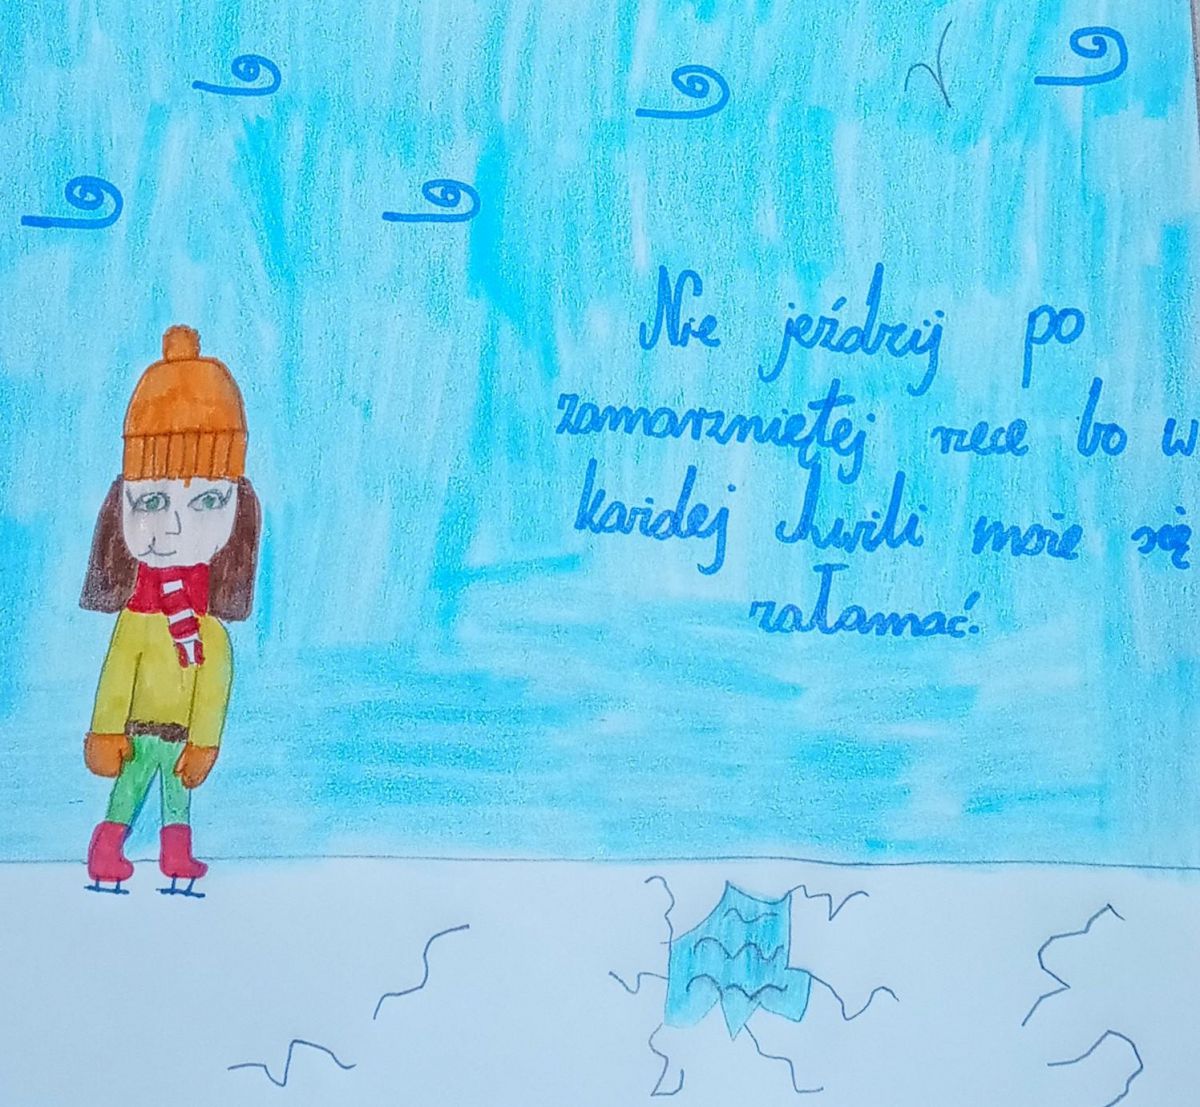 Nie jeździj po
zamarzniętej rzece bo w
każdej chwili może się
załamać.